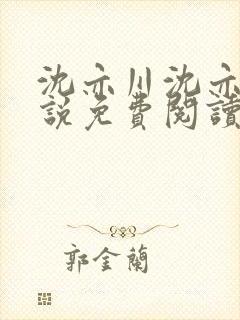 沈亦川沈亦
說免費閱讀
郭金蘭